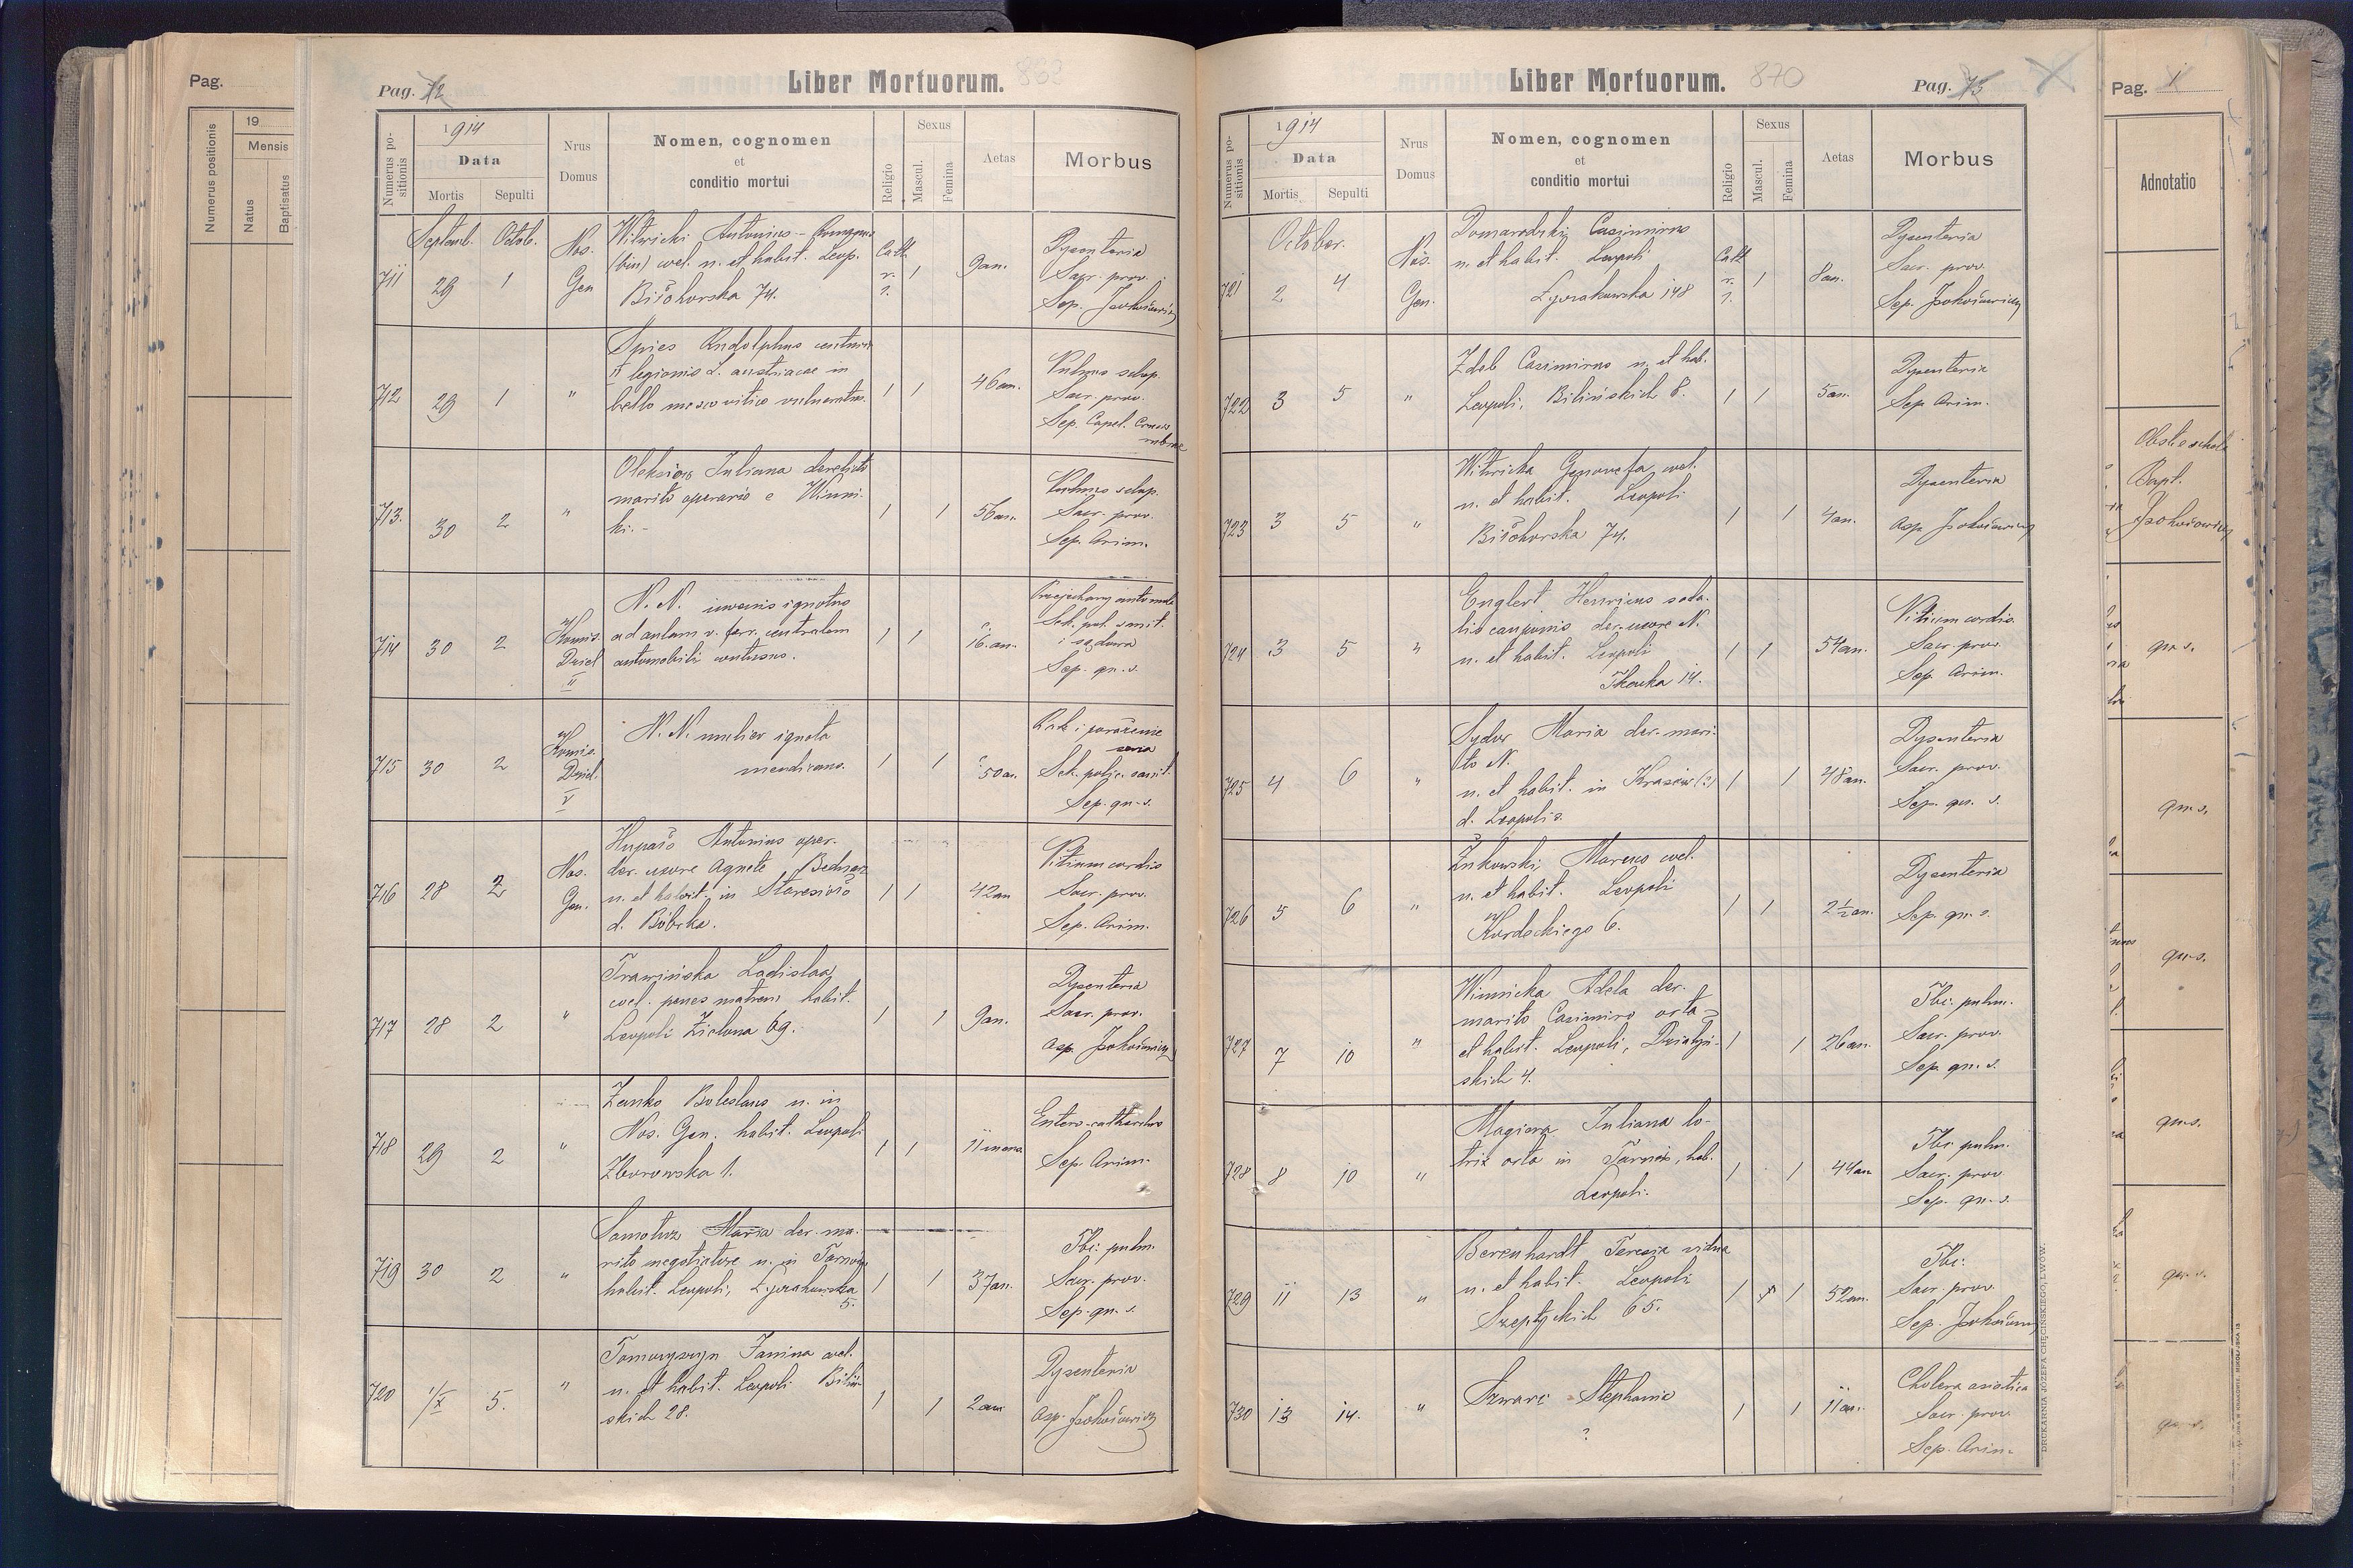 Pag.
Numerus positionis
19
Mensis
Natus
Baptisatus
Pag. 72
Liber Mortuorum.
Numerus positionis
1914
Data
Mortis
Sepulti
Nrus
Domus
Nomen, cognomen
et
conditio mortui
Religio
Sexus
Mascul.
Femina
Aetas
Morbus
Septemb. Octob.
711 29 1 Nos. Gen
Witwicki Antonius -
(bin) coel. n. et habit. Leop.
Biłohorska 74.
Cath. r. 1. 1 9 an.
Dysenteria
Sacr. prov.
Sep.
712 29 1 "
Spies Rudolphus
legionis d. austriacae in
bello moscovitico vulneratus.
1 1 46 an.
Vulnus sclop.
Sacr. prov.
Sep. Capel.
713. 30 2 "
Juliana derelicta
marito operario e Winni-
ki.-
1 1 56 an.
Vulnus sclop.
Sacr. prov.
Sep. Arim.
714 30 2 Komis. Dziel II
N. N. iuvenis ignotus
ad aulam v. ferr. centralem
automobili contusus.
1 1 16 an.
Przejechany
i sądowa
Sep. qu. s.
715 30 2 Komis. Dziel. V
N. N. mulier ignota
mendicans.
1 1 50 an.
Rak i porażenie
serca
Sep. qu. s.
716 28 2 Nos. Gen.
Antonius oper.
der. uxore Agnete Bednarz
n. et habit. in Staresioło
d. Bóbrka.
1 1 42 an
Vitium cordis
Sacr. prov.
Sep. Arim.
717 28 2 "
Trawińska Ladislaa
coel. penes matrem habit.
Leopoli Zielona 69.
1 1 9 an.
Dysenteria
Sacr. prov.
Asp.
718 29 2 "
Zanko Boleslaus n. in
Nos. Gen. habit. Leopoli
Zborowska 1.
1 1 11 mens
Sep. Arim.
719 30 2 "
Maria der. ma-
rito negotiatore n. in
habit. Leopoli, Zyrakowska
5.
1 1 37 an.
Tbc. pulm.
Sacr. prov.
Sep. qu. s.
720 1/X 5. "
Janina coel.
n. et habit. Leopoli Biliń-
skich 28.
1 1 2 ann
Dysenteria
Asp.
Liber Mortuorum.
870
Pag. 73
Numerus positionis
1914
Data
Mortis
Sepulti
Nrus
Domus
Nomen, cognomen
et
conditio mortui
Religio
Sexus
Mascul.
Femina
Aetas
Morbus
October.
721 2 4 Nos. Gen.
Domaradzki Casimirus
n. et habit. Leopoli
Zyrakowska 148
Cath r. 1. 1 8 an.
Dysenteria
Sacr. prov.
Sep.
722 3 5 "
Zdeb Casimirus n. et hab.
Leopoli, Bilińskich 8.
1 1 5 an.
Dysenteria
Sep. Arim.
723 3 5 "
Witwicka Genovefa coel.
n. et habit. Leopoli
Biłohorska 74.
1 1 4 an.
Dysenteria
Asp.
724 3 5 "
Englert Henricus soda-
lis cauponis der. uxore N.
n. et habit. Leopoli
Tkacka 14.
1 1 54 an.
Vitium cordis
Sacr. prov.
Sep. Arim.
725 4 6 "
Sydor Maria der. mari-
to N.
n. et habit. in Krasów (?)
d. Leopolis.
1 1 48 an.
Dysenteria
Sacr. prov.
Sep. qu. s.
726 5 6 "
Żukowski Marcus coel.
n. et habit. Leopoli
Kordeckiego 6.
1 1 2½ an.
Dysenteria
Sep. qu. s.
727 7 10 "
Winnicka Adela der.
marito Casimiro orta
et habit. Leopoli, Działyń-
skich 4.
1 1 26 an.
Tbc. pulm.
Sacr. prov.
Sep. qu. s.
728 8 10 "
Magiera Juliana lo-
trix orta in hab.
Leopoli.
1 1 44 an
Tbc. pulm.
Sacr. prov
Sep. qu. s.
729 11 13 "
Berenhardt Teresia vidua
n. et habit. Leopoli
Szeptyckich 65.
1 1 52 an.
Tbc.
Sacr. prov.
Sep.
730 13 14. "
Szwarc Stephania
?
1 1 11 an.
Cholera asiatica
Sacr. prov
Sep. Arim.
DRUKARNIA JÓZEFA CHĘCIŃSKIEGO, LWÓW.
Pag.
Adnotatio
Bapt.
qu. s.
qu. s.
qu. s.
qu. s.
qu. s.
qu. s.